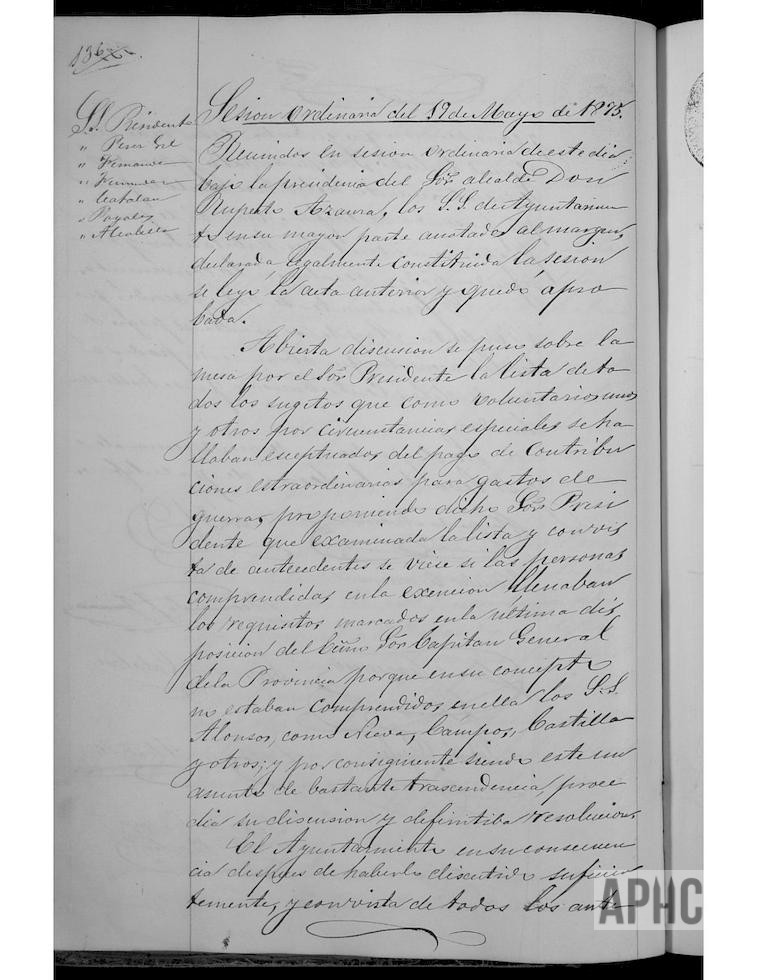 136
S.S. Presidente
" Perez Gil
" Fernandez
" Catalan
" Alcobilla
Sesion ordinaria del 19 de Mayo de 1875.
Reunidos en sesion ordinaria de este dia
bajo la presidencia del Sor. alcalde Don
Ruperto Azaura, los S.S. de Ayuntamien
to en su mayor parte anotados al margen,
declarada legalmente constituida la sesion
se leyó la acta anterior y quedó apro
bada.
Abierta discusion se puso sobre la
mesa por el Sor. Presidente la lista de to
dos los sugetos que como voluntarios unos
y otros por circunstancias especiales se ha
llaban exceptuados del pago de contribu
ciones estraordinarias para gastos de
guerra, proponiendo dicho Sor. Presi
dente que examinada la lista y con vis
ta de antecedentes se viese si las personas
comprendidas en la exencion llenaban
los requisitos marcados en la ultima dis
posicion del Escmo Sor. Capitan General
de la Provincia porque en su concepto
no estaban comprendidos en ella los S.S.
Alonsos, como Nieva, Campos, Castilla
y otros; y por consiguiente siendo este un
asunto de bastante trascendencia, proce
dia su discusion y definitiba resolucion.
El Ayuntamiento en su consecuen
cia despues de haberlo discutido suficien
temente, y con vista de todos los ante
APHC